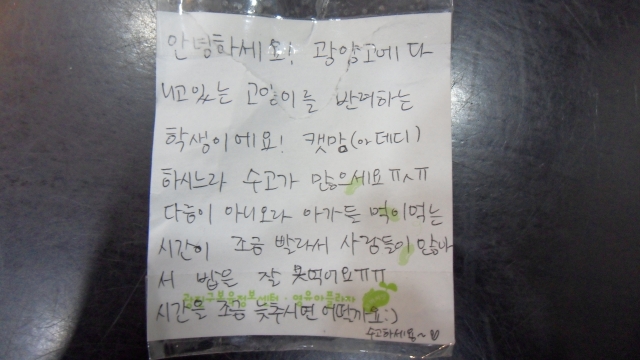 안녕하세요! 광양고에 다
니고있는 고일이를 반려하는
학생이에요! 캣맘(아데디)
하시느라 수고가 많으세요ㅠㅅㅠ
다름이 아니오라 아가들 먹이먹는
시간이 조금 빨라서 사람들이 많아
서 밥은 잘 못먹어요ㅠㅠ
시간을 조금 늦추시면 어떨까요:)
수고하세용~♡